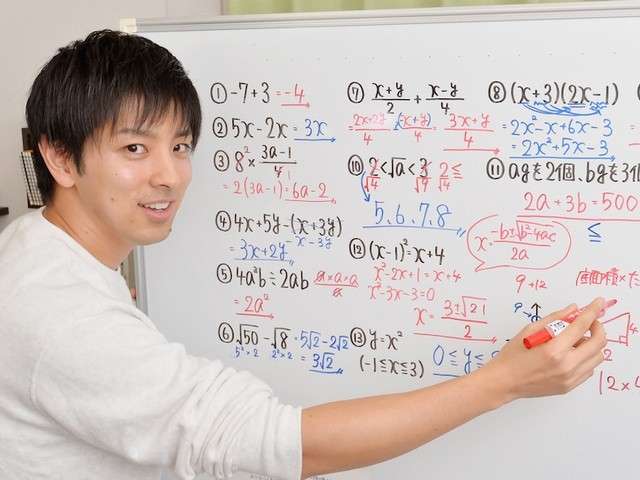 ① -7+3 = -4
② 5x-2x = 3x
③ 8² × 3a-1/4
= 2(3a-1) = 6a-2
④ 4x+5y-(x+3y)
= 3x+2y -x-3y
⑤ 4a²b÷2ab a×a×a/a
= 2a²
⑥ √50-√8 = 5√2-2√2
5²×2 2²×2 = 3√2
⑦ x+y/2 + x-y/4
= 2x+2y/4 (x+y)/4 = 3x+y/4
⑩ 2<√a<3 2≦
√4 √9 √4
5.6.7.8
⑫ (x-1)²=x+4
x²-2x+1=x+4
x²-3x-3=0
x = 3±√21/2
⑬ y=x²
(-1≦x≦3) 0≦y≦
⑧ (x+3)(2x-1)
= 2x²-x+6x-3
= 2x²+5x-3
⑪ agを2個、bgを3個
2a+3b=500
≦
x = -b±√b²-4ac/2a
9+12
9
2
12×4